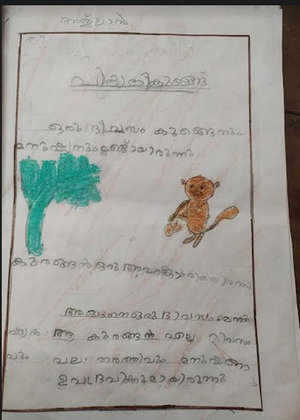 അജ്ലാൻ
വികൃതികുരങ്ങ്
ഒരു ദിവസം കുരങ്ങനും
മനുഷ്യനും ഉണ്ടായിരുന്നു
കുരങ്ങൻ ഒരു
അങ്ങനെ ഒരു ദിവസം
ആ കുരങ്ങൻ എല്ലാ ദിവസ
വും പല തരത്തിലും മനുഷ്യനെ
ഉപദ്രവിക്കുമായിരുന്നു